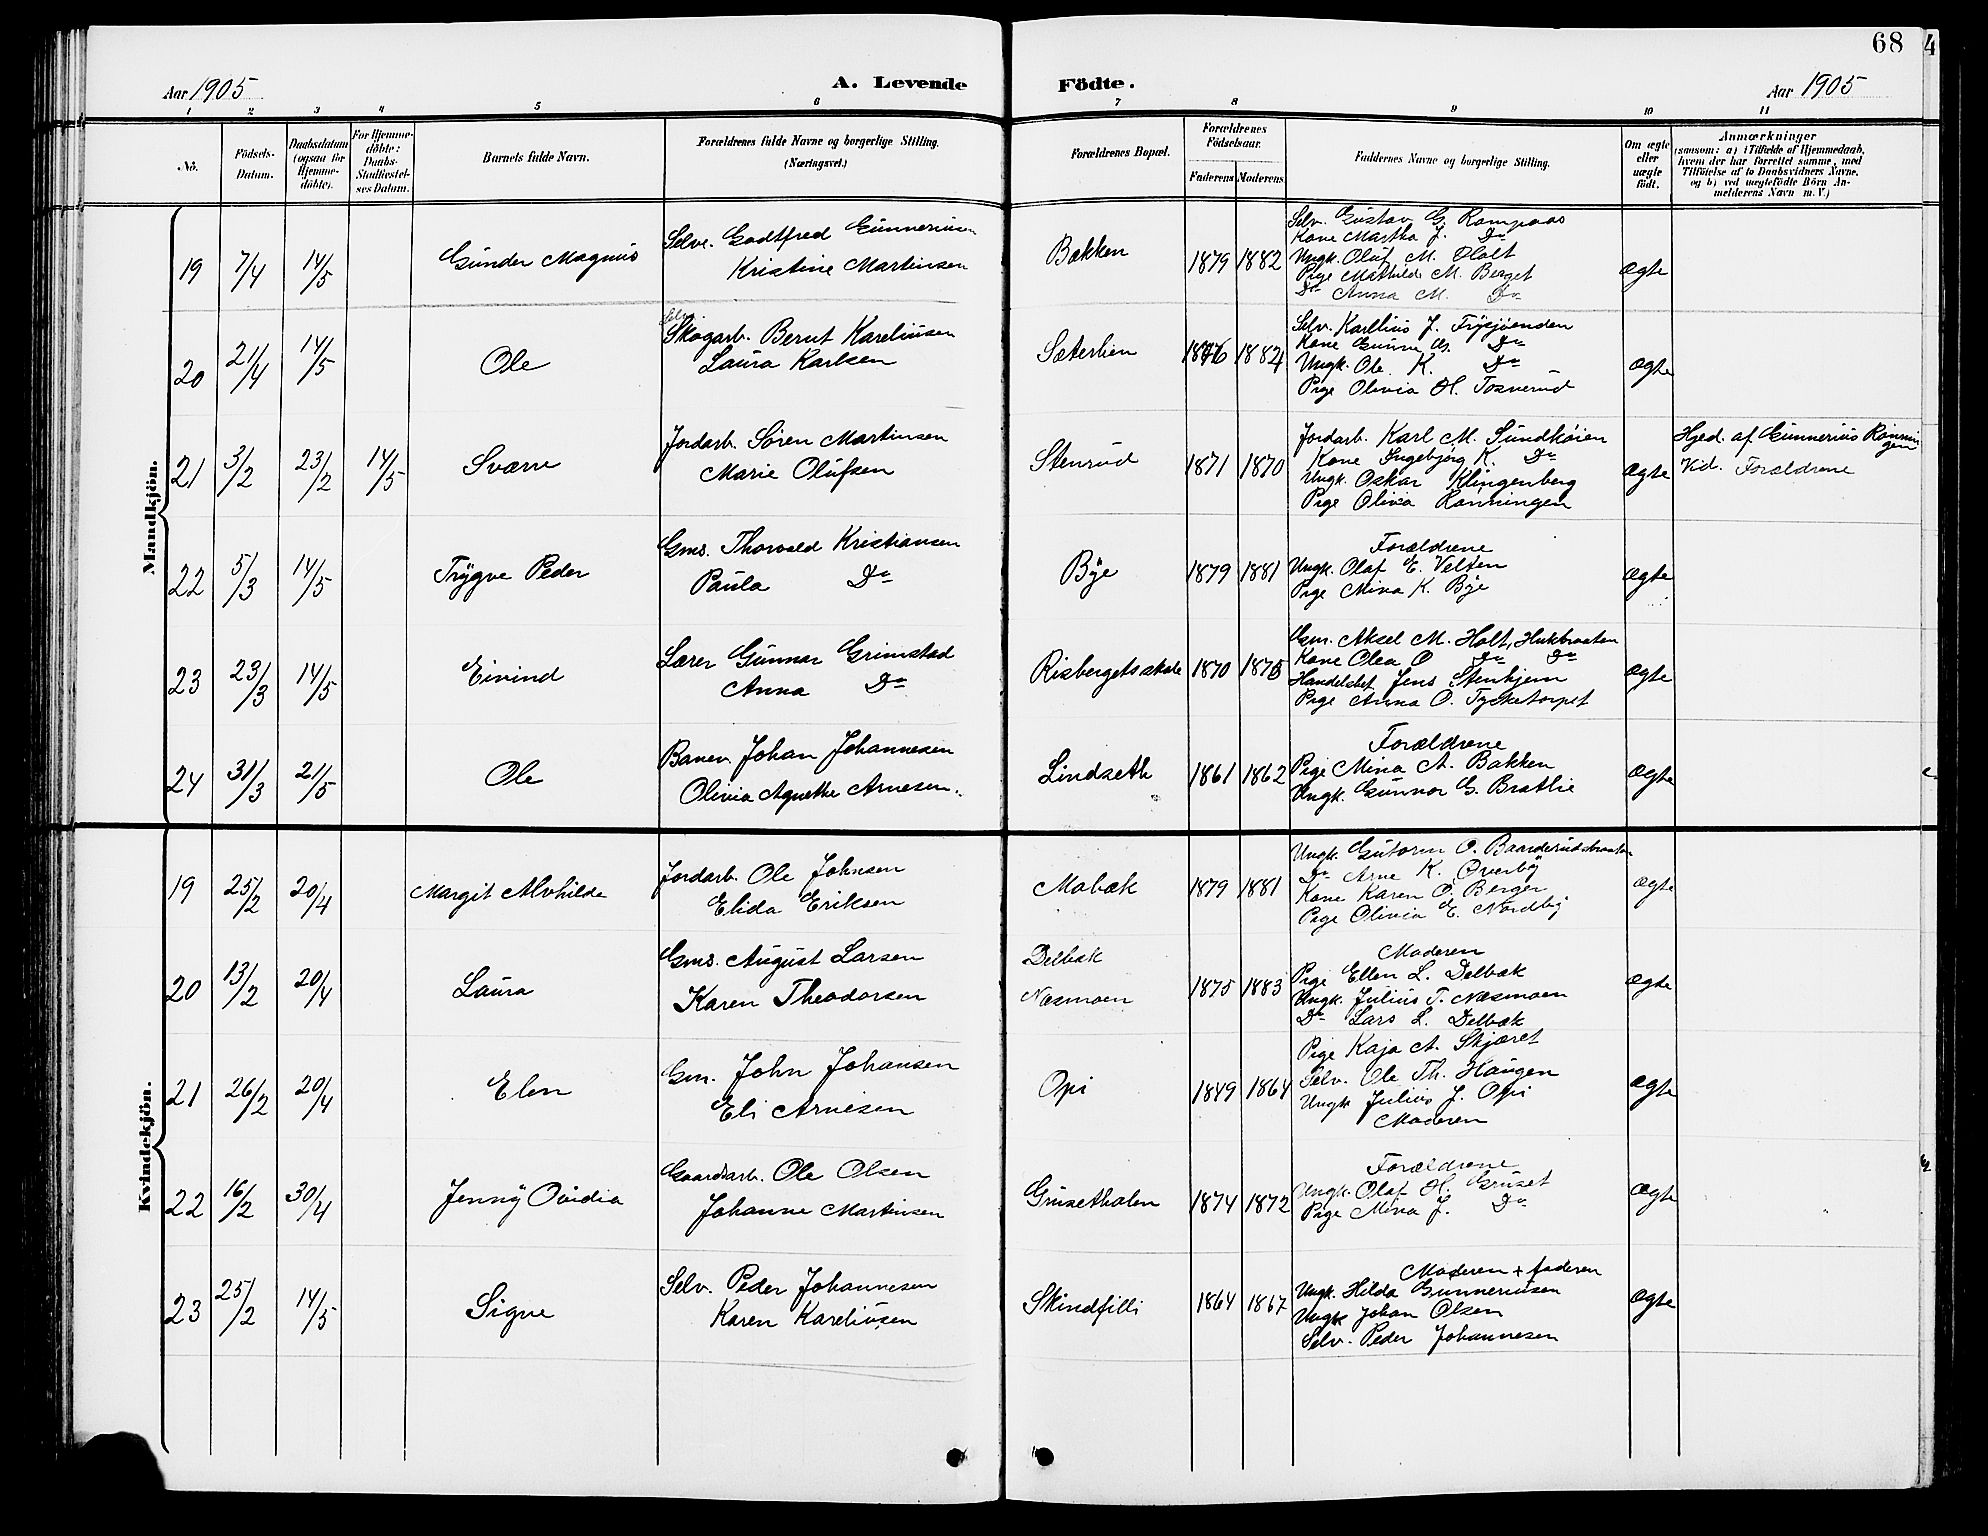 68
4
Aar 1905
A. Levende Födte.
Aar 1905
1 2 3 4 5 6 7 8 9 10 11
No.
Födsels-
Datum.
Daabsdatum
(ogsaa for
Hjemme-
döbte).
For Hjemme-
döbte:
Daabs-
Stadfæstel-
ses Datum.
Barnets fulde Navn.
Forældrenes fulde Navne og borgerlige Stilling.
(Næringsvei.)
Forældrenes Bopæl.
Forældrenes
Födselsaar.
Faderens Moderens
Faddernes Navne og borgerlige Stilling.
Om ægte
eller
uægte
födt.
Anmærkninger
(saasom: a) i Tilfælde af Hjemmedaab,
hvem der har forrettet samme, med
Tilföielse af to Daabsvidners Navne,
og b) ved uægtefödte Börn An-
melderens Navn m. V.)
Mandkjön.
19 7/4 14/5 Gunder Magnus
Selve. Godtfred Gunneriusen
Kristine Martinsen
Bakken 1879 1882
Selv. Gustav G. Rompaas
Kone Martha J. Do
Ungk. Oluf M. Holt
Pige Mathilde M. Berget
Do Anna M. Do
Ægte
20 21/4 14/5 Ole
Selv.
Skogarb. Bernt Kareliusen
Laura Karlsen
Sæterlien 1876 1884
Selv. Karelius J. Frysjøenden
Kone Gunine G. Do
Ungk. Ole K. Do
Pige Olivia H. Tosverud
Ægte
21 3/2 23/2 14/5 Sværre
Jordarb. Søren Martinsen
Marie Olufsen
Stenrud 1871 1870
Jordarb. Karl M. Sundkøien
Kone Ingebjørg K. Do
Ungk. Oskar Klingenberg
Pige Olivia Rønningen
Ægte
Hjed. af Gunnerius Rønnin
gen
Vid. Forældrene
22 5/3 14/5 Trygve Peder
Gms. Thorvald Kristiansen
Paula Do
Bye 1879 1881
Forældrene
Ungk. Olaf E. Velten
Pige Mina K. Bye
Ægte
23 23/3 14/5 Eivind
Lærer Gunnar Grimstad
Anna Do
Risbergets skole 1870 1875
Gm. Aksel M. Holt, Hukbraaten
Kone Olea O Do Do
Handelsbet Jens Stenhjem
Pige Anna O. Tysketorpet
Ægte
24 31/3 21/5 Ole
Banev. Johan Johannesen
Olivia Agnethe Arnesen.
Lindseth 1861 1862
Forældrene
Pige Mina A. Bakken
Ungk. Gunnar G. Brathie
Ægte
Kvindekjön.
19 25/2 20/4 Margit Alvhilde
Jordarb. Ole Johnsen
Elida Eriksen
Mobæk 1879 1881
Ungk. Gutorm O. Banderudsbraaten
Do Arne K. Øverby
Kone Karen O. Berger
Pige Olivia E. Nordby
Ægte
20 13/2 20/4 Laura
Gms. August Larsen
Karen Theodorsen
Delbæk
Næsmoen 1875 1883
Moderen
Pige Ellen L. Delbæk
Ungk. Julius T. Næsmoen
Do Lars L. Delbæk
Ægte
21 26/2 20/4 Elen
Gm. John Johansen
Eli Arnesen
Opi 1849 1864
Pige Kaja A. Skjæret
Selv. Ole Th. Haugen
Ungk Julius J. Opi
Moderen
Ægte
22 16/2 30/4 Jenny Ovidia
Gaardsarb. Ole Olsen
Johanne Martinsen
Grusethalen 1874 1872
Forældrene
Ungk. Olaf H. Gruset
Pige Mina J. Do
Ægte
23 25/2 14/5 Signe
Selv. Peder Johannesen
Karen Kareliusen
Skindfilli 1864 1867
Moderen + faderen
Ungk. Hilda Gunneriusen
Ungk Johan Olsen
Selv. Peder Johannesen
Ægte